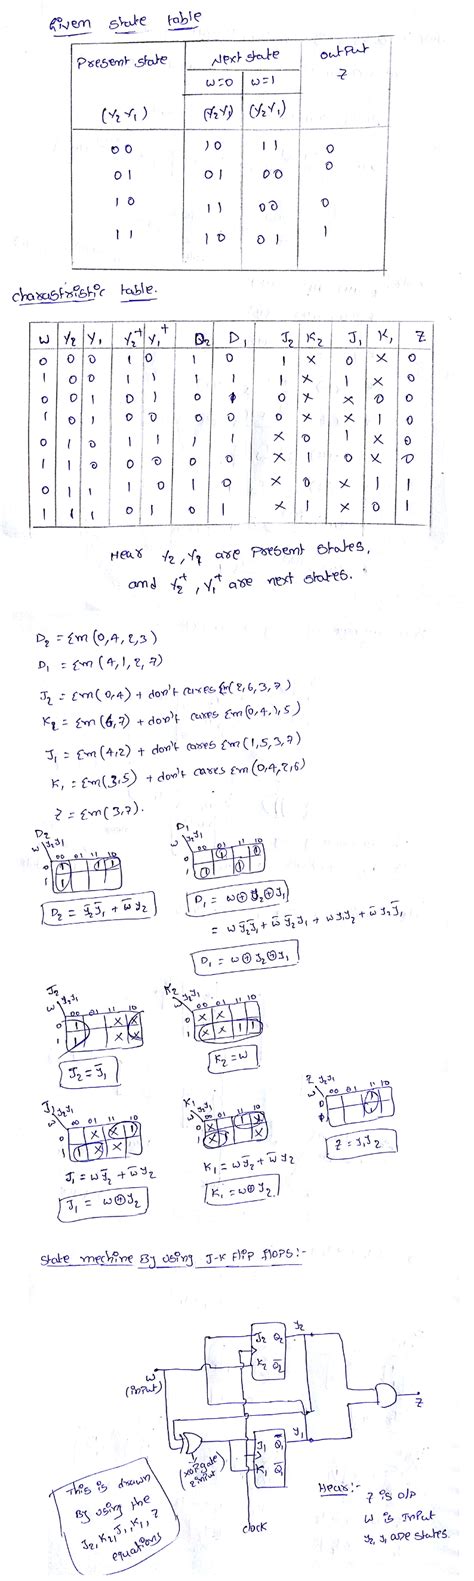 Given state table
Present state Next state output
w=0 w=1 Z
(Y2 Y1) (Y2Y1) (Y2Y1)
00 10 11 0
01 01 00 0
10 11 00 0
11 10 01 1
charastristic table.
w Y2 Y1 Y2+ Y1+ D2 D1 J2 K2 J1 K1 Z
0 0 0 1 0 1 0 1 x 0 x 0
1 0 0 1 1 1 1 1 x 1 x 0
0 0 1 0 1 0 1 0 x x 0 0
1 0 1 0 0 0 0 0 x x 1 0
0 1 0 1 1 1 1 x 0 1 x 0
1 1 0 0 0 0 0 x 1 0 x 0
0 1 1 1 0 1 0 x 0 x 1 1
1 1 1 0 1 0 1 x 1 x 0 1
Hear Y2, Y1 are Present states,
and Y2+, Y1+ are next states.
D2 = Σm(0,4,2,3)
D1 = Σm(4,1,2,7)
J2 = Σm(0,4) + don't cares Σm(2,6,3,7)
K2 = Σm(6,7) + don't cares Σm(0,4,1,5)
J1 = Σm(4,2) + don't cares Σm(1,5,3,7)
K1 = Σm(3,5) + don't cares Σm(0,4,2,6)
Z = Σm(3,7).
D2 D1
w y2y1 00 01 11 10 w y2y1 00 01 11 10
0 1 1 1 0 1 1
1 1 1 1 1
D2 = ȳ2ȳ1 + w̄y2 D1 = w⊕y2⊕y1
= wȳ2ȳ1 + w̄ȳ2y1 + wy1y2 + w̄y2ȳ1
D1 = w⊕y2⊕y1
J2 K2
w y2y1 00 01 11 10 w y2y1 00 01 11 10
0 1 x x 0 x x
1 1 x x 1 x x 1 1
J2 = ȳ1 K2 = w
J1 K1 Z
w y2y1 00 01 11 10 w y2y1 00 01 11 10 w y2y1 00 01 11 10
0 x x 1 0 x 1 x 0 1
1 1 x x 1 x 1 x 1
J1 = wȳ2 + w̄y2 K1 = wȳ2 + w̄y2 Z = y1y2
J1 = w⊕y2 K1 = w⊕y2
State mechine By using J-K Flip flops:-
J2 Q2 y2
K2 Q̄2
w
(input)
Z
J1 Q1 y1
K1 Q̄1
(xor gate
2 input)
clock
This is drawn
By using the
J2, K2, J1, K1, Z
equations
Hear:-
Z is o/p
w is input
y2 y1 are states.